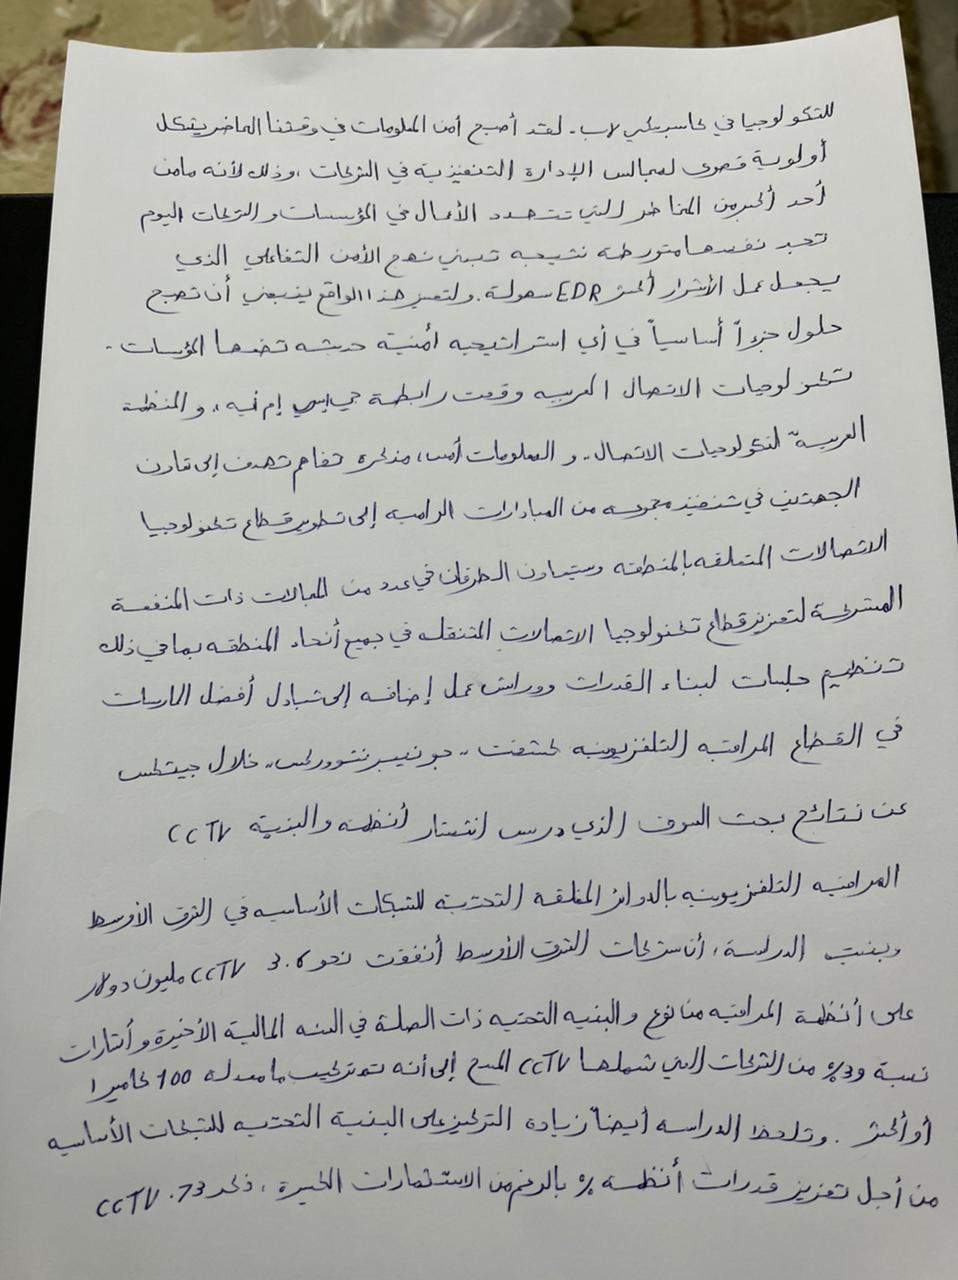 للتكنولوجيا في كاسبرسكي لاب. لقد أصبح أمن المعلومات في وقتنا الحاضر يشكل
أولوية قصوى لمجالس الإدارة التنفيزية في الشركات ، وذلك لأنه مامن
أحد أكبر من المخاطر التي تتهدد الأعمال في المؤسسات والشركات اليوم
تجد نفسها متورطة نتيجه تبني نهج الأمن التفاعلي الذي
يجعل عمل الأشرار أكثر EDR سهولة . ولتغيير هذا الواقع ينبغي أن تصبح
حلول جزءاً أساسياً في أي استراتيجيه أمنية حديثه تضعها المؤسسات .
تكنولوجيات الاتصال العربيه وقعت رابطة جي إس إم أيه ، والمنظمة
العربية لتكنولوجيات الاتصال .. و المعلومات أمس ، مذكرة تفاهم تهدف إلى تعاون
الجهتين في تنفيذ مجموعه من المبادارات الراميه إلى تطوير قطاع تكنولوجيا
الاتصالات المتعلقه بالمنطقه وسيتعاون الطرفان في عدد من المجالات ذات المنفعة
المشتركة لتعزيز قطاع تكنولوجيا الاتصالات المتنقله في جميع أنحاء المنطقه بما في ذلك
تنظيم جلسات لبناء القدرات وورش عمل إضافه إلى تبادل أفضل الممارسات
في القطاع المراقبه التلفزيونيه كشفت ,, جونيبر نتووركس ,, خلال جيتكس
عن نتائج بحث السوق الذي درس انتشار أنظمه والبنية CCTV
المراقبه التلفزيونيه بالدوائر المغلقة التحتية للشبكات الأساسيه في الشرق الأوسط
وبينت الدراسة ، أن شركات الشرق الأوسط أنفقت نحو 3.6 CCTV مليون دولار
على أنظمة المراقبه من نوع والبنيه التحتيه ذات الصلة في السنه المالية الأخيرة وأشارات
نسبة و3% من الشركات التي شملها CCTV المسح إلى أنه تم تركيب ما معدله 100 كاميرا
أو أكثر . وتلحظ الدراسه أيضاً زيادة التركيز على البنية التحتيه للشبكات الأساسيه
من أجل تعزيز قدرات أنظمة % بالرغم من الاستثمارات الكبيرة ، ذكر 73. CCTV